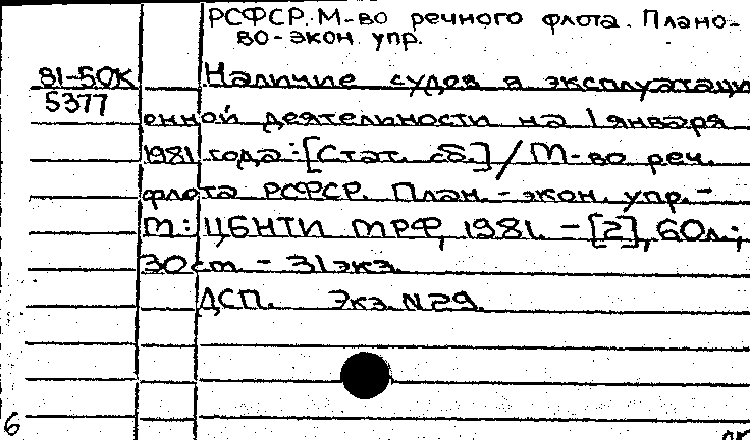 РСФСР. М-во речного флота. Плано-
во-экон. упр.
81-50К
5377
Наличие судов в эксплуатаци
енной деятельности на 1 января
1981 года: [Стат. сб.] / М-во реч.
флота РСФСР. План.-экон. упр. -
М.: ЦБНТИ МРФ, 1981. - [2], 60л.;
30см. - 31 экз.
ДСП. Экз. N29.
6